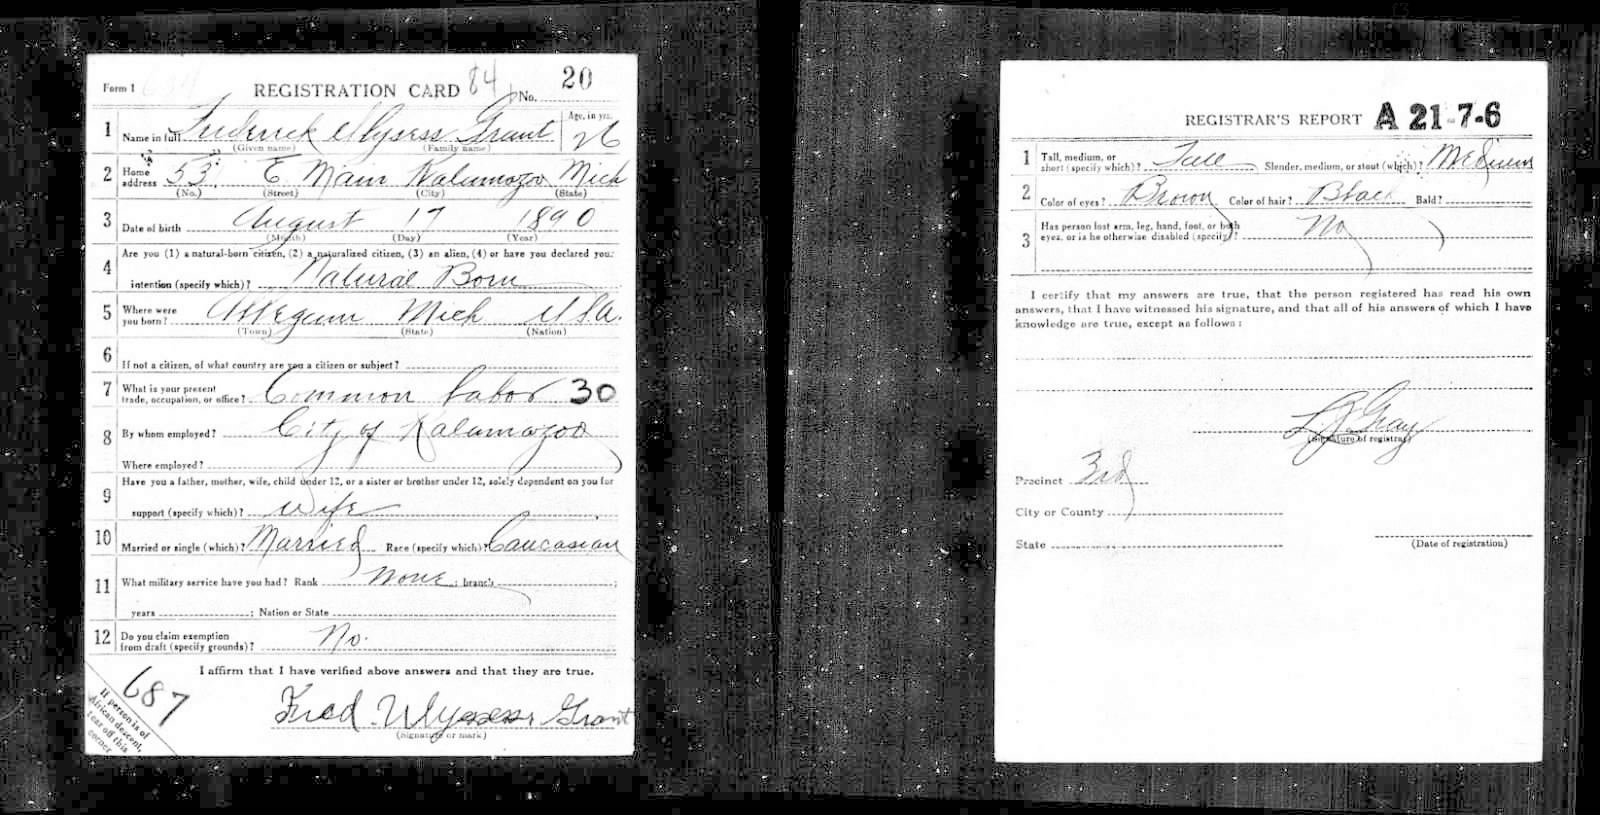 Form 1
REGISTRATION CARD 84 No. 20
1 Name in full Frederick Ulysess Grant Age, in yrs. 26
(Given name) (Family name)
2 Home address 53 E. Main Kalamazoo Mich
(No.) (Street) (City) (State)
3 Date of birth August 17 1890
(Month) (Day) (Year)
4 Are you (1) a natural-born citizen, (2) a naturalized citizen, (3) an alien, (4) or have you declared your
intention (specify which)? Natural Born
5 Where were you born? Allegan Mich U.S.A.
(Town) (State) (Nation)
6 If not a citizen, of what country are you a citizen or subject?
7 What is your present trade, occupation, or office? Common Labor 30
8 By whom employed? City of Kalamazoo
Where employed?
9 Have you a father, mother, wife, child under 12, or a sister or brother under 12, solely dependent on you for
support (specify which)? Wife
10 Married or single (which)? Married Race (specify which)? Caucasian
11 What military service have you had? Rank None ; branch ;
years ; Nation or State
12 Do you claim exemption from draft (specify grounds)? No.
I affirm that I have verified above answers and that they are true.
Fred Ulysess Grant
(Signature or mark)
687
If person is of
African descent,
tear off this
corner
REGISTRAR'S REPORT A 21-7-6
1 Tall, medium, or short (specify which)? Tall Slender, medium, or stout (which)? Medium
2 Color of eyes? Brown Color of hair? Black Bald?
3 Has person lost arm, leg, hand, foot, or both
eyes, or is he otherwise disabled (specify)? No
I certify that my answers are true, that the person registered has read his own
answers, that I have witnessed his signature, and that all of his answers of which I have
knowledge are true, except as follows:
L J Gray
(Signature of registrar)
Precinct 3rd
City or County
State
(Date of registration)